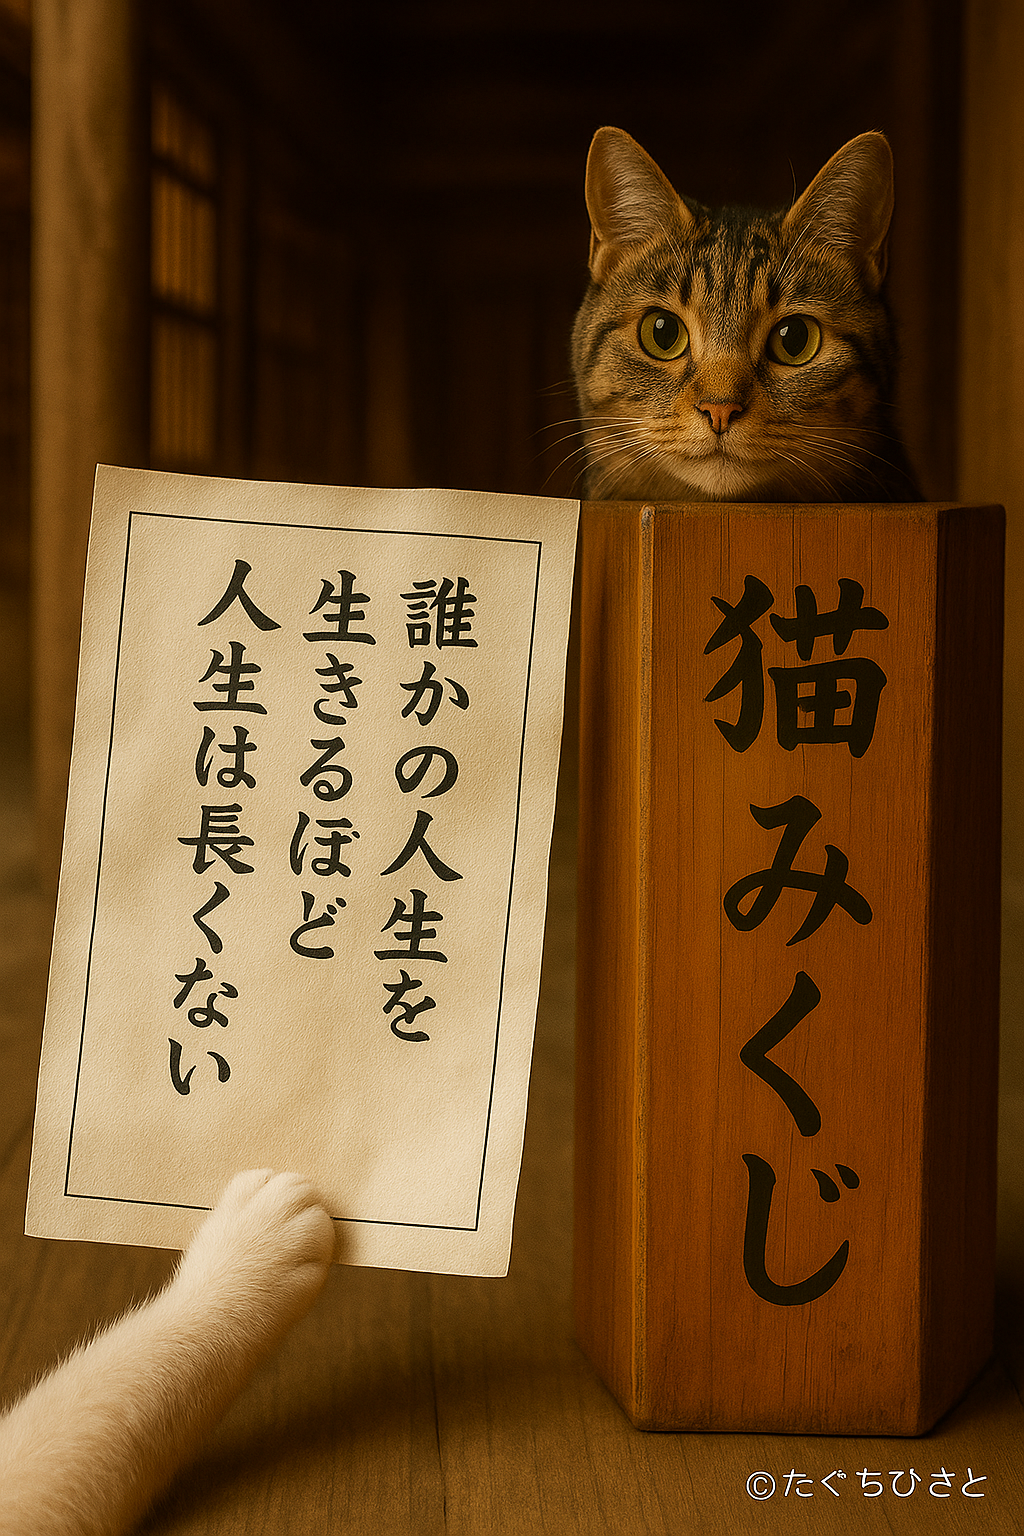 誰かの人生を
生きるほど
人生は長くない
猫みくじ
©たぐちひさと